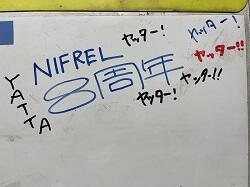 NIFREL
8周年
YATTA
ヤッター!
ヤッター!
ヤッター!!
ヤッター!!
ヤッター!